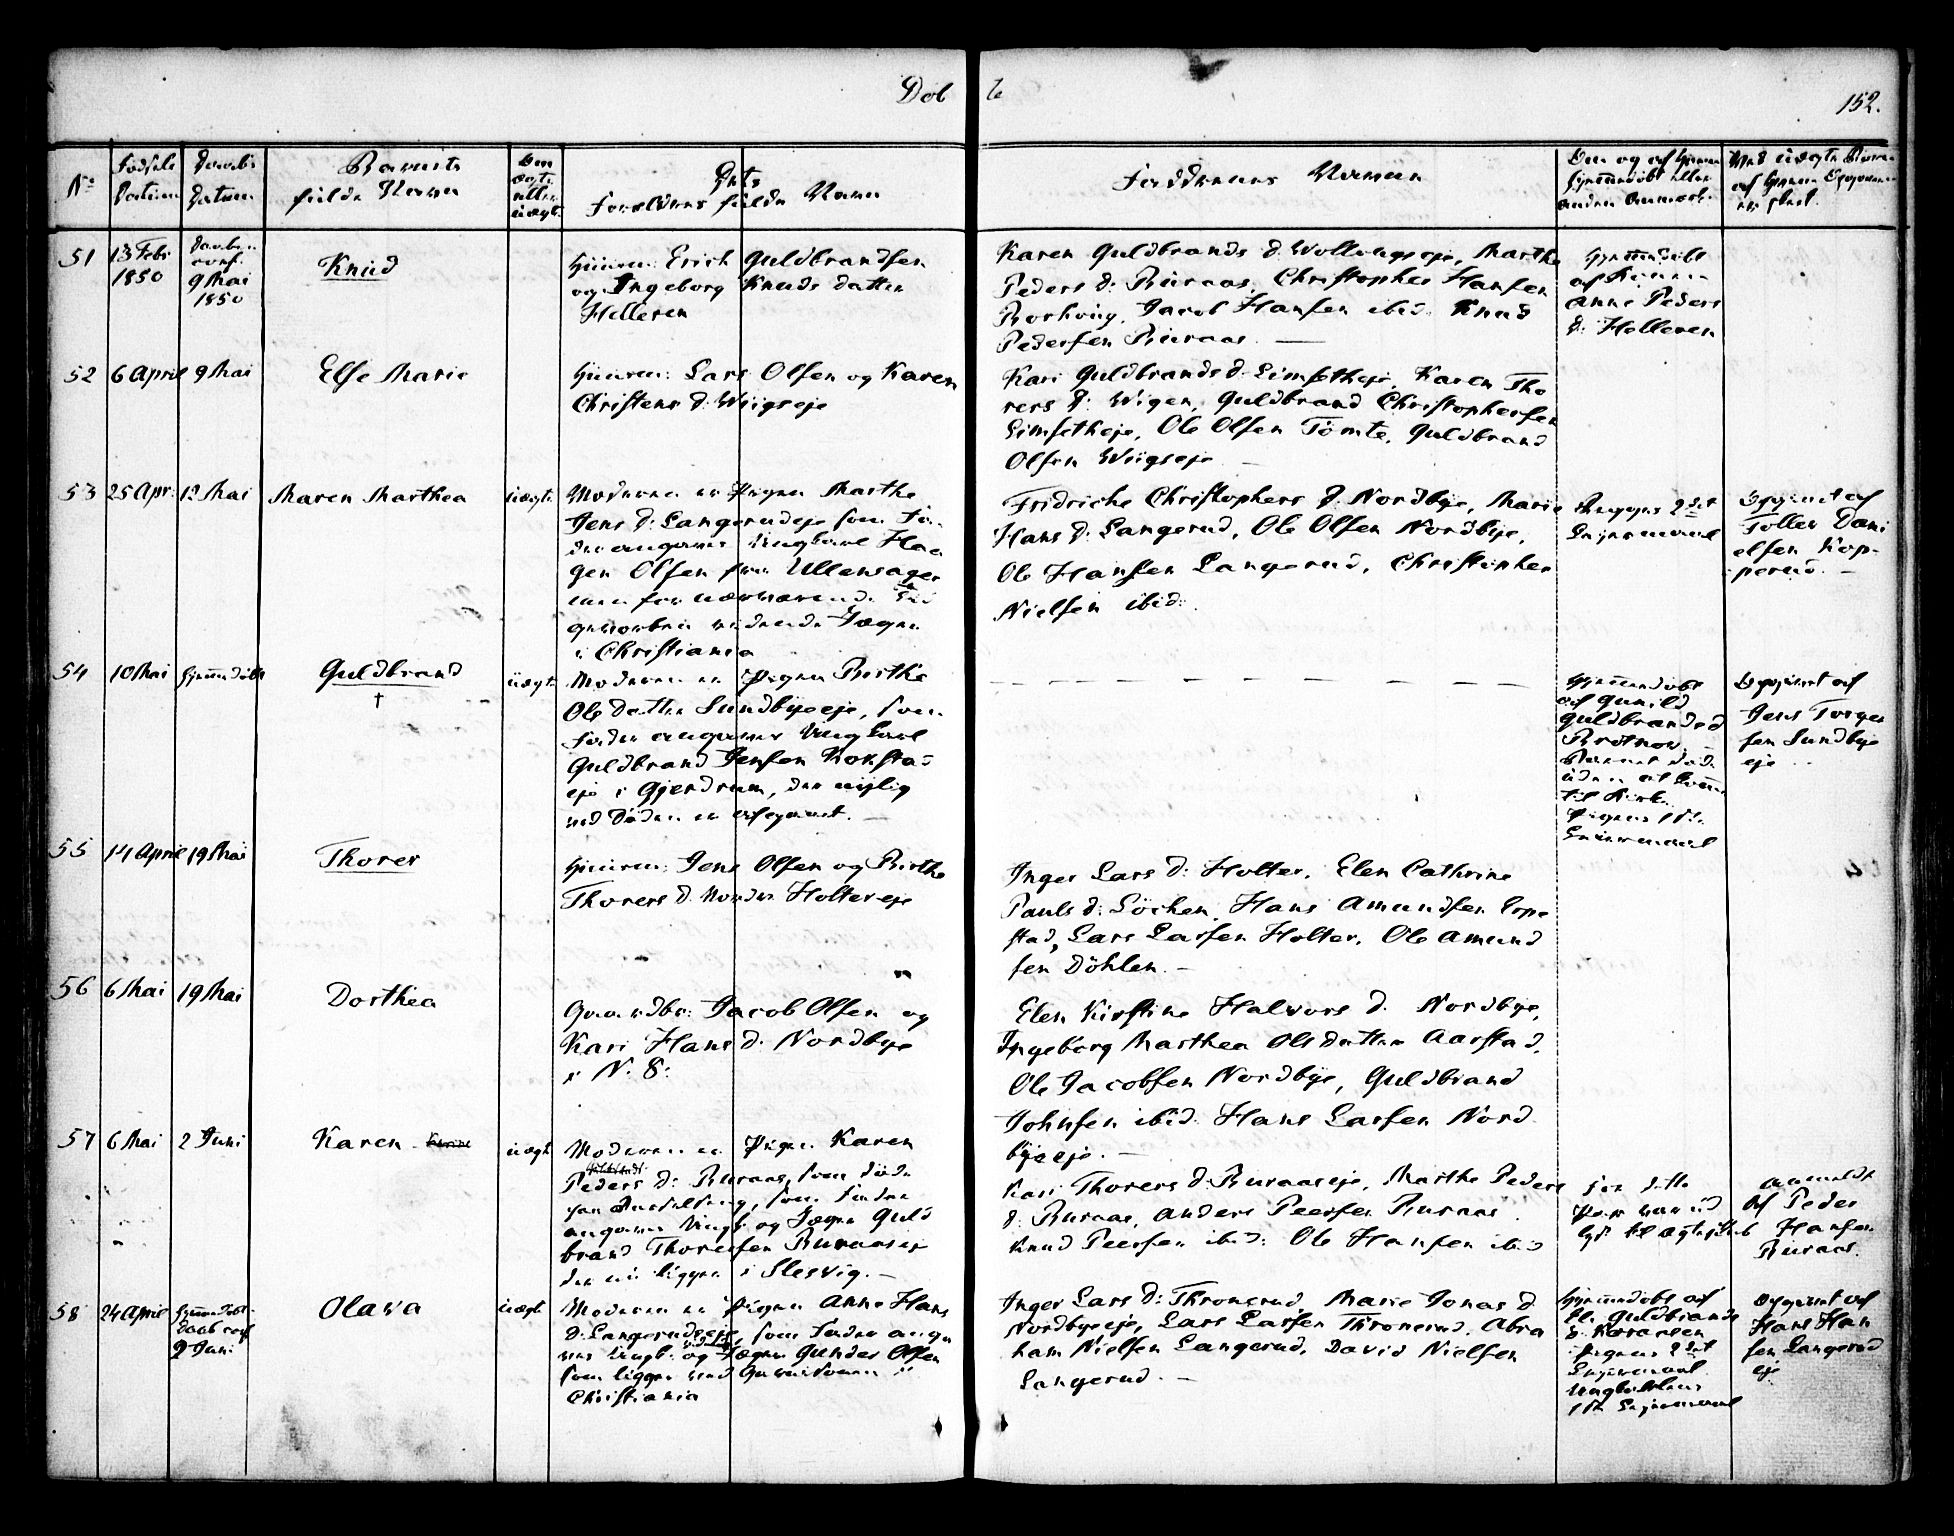 Døb
e
152.
No
Fødsels
Datum
Daabs
Datum
Barnets
fulde Navn
Om
ægte
eller
uægte
Dets
Forældres fulde Navn
Faddernes Navne
Om og af hvem
hjemmedøbt eller
anden Anmærk.
Ved uægte Børn
af hvem Opgiven
er skeet.
51
13 Febr
1850
Daaben
conf.
9 Mai
1850
Knud
Huusm: Erich Guldbrandsen
og Ingeborg Knuds datter
Helleren
Karen Guldbrands d. Wollaugseje, Marthe
Peders d: Buraas, Christopher Hansen
Borhoug, Jacob Hansen ibid. Knud
Pedersen Buraas.
Hjemmedøbt
af Konen
Anne Peders
d: Helleren
52
6 April
9 Mai
Else Marie
Huusm: Lars Olsen og Karen
Christens d: Wiigseje
Kari Guldbrands d: Limsetheje, Karen Tho
rers d: Wigen, Guldbrand Christophersen
Limsetheje, Ole Olsen Tömte, Guldbrand
Olsen Wiigseje
53
25 Apr:
12 Mai
Maren Marthea
uægte
Moderen er Pigen Marthe
Jens d: Langerudeje som Fa-
der angaves Ungkarl Haa
gen Olsen fra Ullensager
men for nærværende
gevorben ridende Jæger
i Christiania
Fridriche Christophers d. Nordbye, Marie
Hans d: Langerud, Ole Olsen Nordbye,
Ole Hansen Langerud, Christopher
Nielsen ibid:
Pigens 2det
Leiermaal
Opgivet af
Tollev Dani
elsen Kop-
perud.
54
10 Mai
Hjemmedøbt
Guldbrand
†
uægte
Moderen er Pigen Berthe
Ole datter Sundbyeeje, som
Fader angaves Ungkarl
Guldbrand Jensen Kokstad
eje i Gjerdrum, der nylig
ved Døden er afgaaet.
Hjemmedøbt
af Gunild
Guldbrandsd
Brotnov.
Barnet døde
uden at komme
til Kirke.
Pigens 1ste
Leiermaal
Opgivet af
Jens Torger
sen Sundbye
eje
55
14 April
19 Mai
Thorer
Huusm: Jens Olsen og Birthe
Thorers d. Nordre Holtereje
Inger Lars d: Holter, Elen Cathrine
Pauls d: Löchen, Hans Amundsen Eppe
stad, Lars Larsen Holter, Ole Amund
sen Döhlen.
56
6 Mai
19 Mai
Dorthea
Gaardbr: Jacob Olsen og
Kari Hans d: Nordbye
i N. 8:
Elen Kirstine Halvors d. Nordbye,
Ingeborg Marthea Ols datter Aarstad,
Ole Jacobsen Nordbye, Guldbrand
Johnsen ibid. Hans Larsen Nord
byeeje.
57
6 Mai
2 Juni
Karen
uægte
Moderen er Pigen Karen
Peders d: Buraas, som døde
som Fader
angaves Ungk. og Jæger Guld
brand Thorersen Buraaseje
der nu ligger i Slesvig.
Kari Thorers d: Buraaseje, Marthe Peders
d: Buraas, Anders Peersen Buraas
Knud Peersen ibid: Ole Hansen ibid
for dette
Par var ud
lyst til Ægteskab
Anmeldt
af Peder
Hansen
Buraas.
58
24 April
Hjemmedøbt
Daab conf
2 Juni
Olava
uægte
Moderen er Pigen Anne Hans
d: Langerudseje, som Fader angi
ves Ungk: og Jæger Gunder Olsen
som ligger ved Garnisonen i
Christiania
Inger Lars d: Thronerud, Marie Jonas d
Nordbyeeje, Lars Larsen Thronerud, Abra
ham Nielsen Langerud, David Nielsen
Langerud.
Hjemmedøbt af
Guldbrands
d: Koransen
Pigens 2det
Leiermaal
Ungkarlens
1ste Leiermaal
Opgivet af
Hans Han
sen Langerud
eje